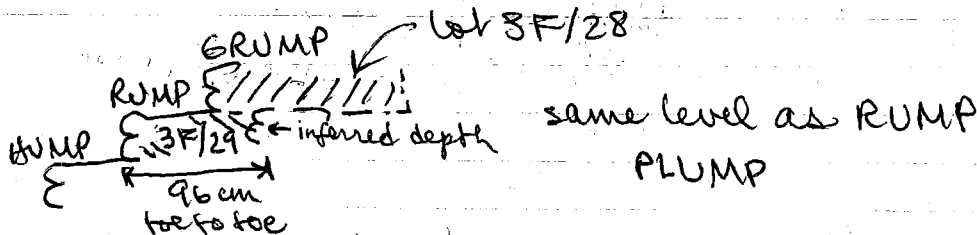 GRUMP
lot 3F/28
RUMP
3F/29
← inferred depth
HUMP
96 cm
toe to toe
same level as RUMP
PLUMP